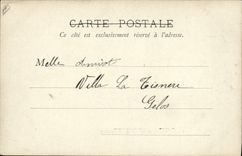 CARTE POSTALE
Ce côté est exclusivement réservé à l'adresse.
Melle
Villa La
Gelos